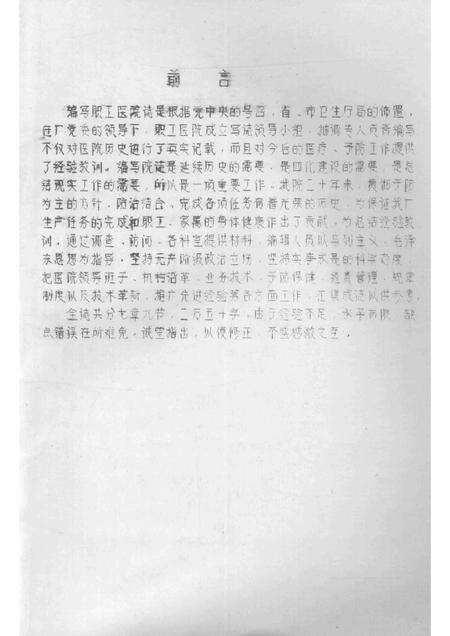 前言
编写职工医院志是根据党中央的号召，省、市卫生厅局的布置，
在厂党委的领导下，职工医院成立写志领导小组，抽调专人负责编写
不仅对医院历史进行了真实记载，而且对今后的医疗、予防工作提供
了经验教训。编写院志是延续历史的需要，是四化建设的需要，是总
结现实工作的需要，所以是一项重要工作。我院三十年来，贯彻予防
为主的方针，防治结合，完成各项任务有着光荣的历史，为保证我厂
生产任务的完成和职工、家属的身体健康作出了贡献，为总结经验教
训，通过调查、访问、各科室提供材料，编辑人员以马列主义、毛泽
东思想为指导，坚持无产阶级政治立场，坚持实事求是的科学态度，
把医院领导班子、机构沿革、业务技术、予防保健、经费管理、规章
制度以及技术革新，推广先进经验等各方面工作，汇集成志以供参考。
全志共分七章九节，二万五千字，由于经验不足，水平有限，缺
点错误在所难免，诚望指出，以便修正，不胜感激之至。